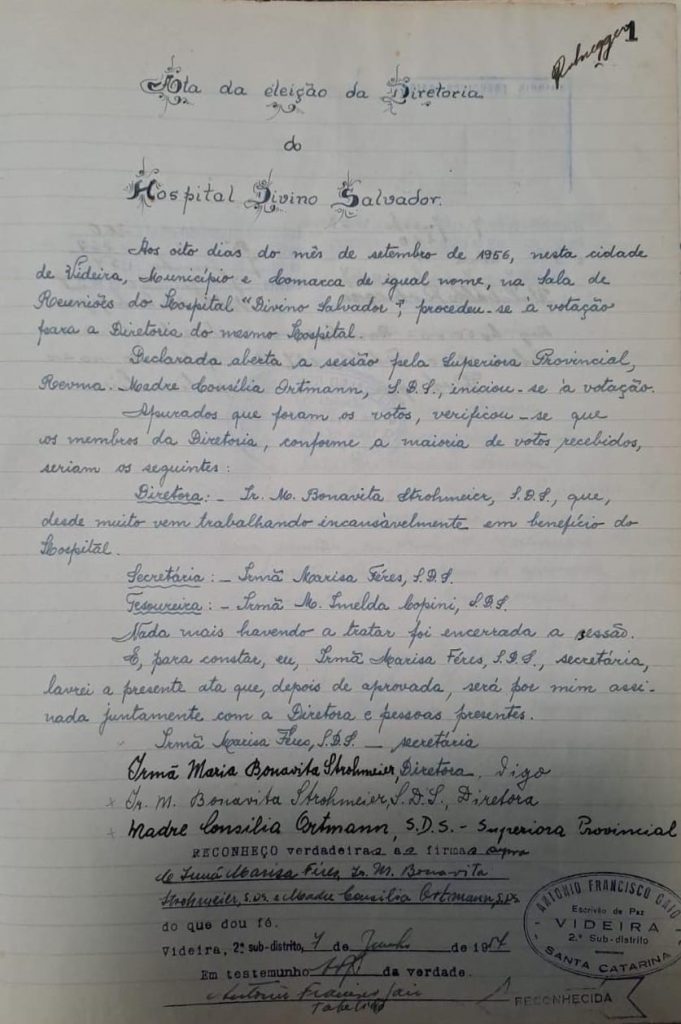 1
Ata da eleição da Diretoria
do
Hospital Divino Salvador.
Aos oito dias do mês de setembro de 1956, nesta cidade
de Videira, Município e Comarca de igual nome, na Sala de
Reuniões do Hospital "Divino Salvador", procedeu-se à votação
para a Diretoria do mesmo Hospital.
Declarada aberta a sessão pela Superiora Provincial,
Revma. Madre Consília Ortmann, S.D.S., iniciou-se à votação.
Apurados que foram os votos, verificou-se que
os membros da Diretoria, conforme a maioria de votos recebidos,
seriam os seguintes:
Diretora: - Ir. M. Bonavita Strohmeier, S.D.S., que,
desde muito vem trabalhando incansàvelmente em benefício do
Hospital.
Secretária: - Irmã Marisa Féres, S.D.S.
Tesoureira: - Irmã M. Imelda Copini, S.D.S.
Nada mais havendo a tratar foi encerrada a sessão.
E, para constar, eu, Irmã Marisa Féres, S.D.S., secretária,
lavrei a presente ata que, depois de aprovada, será por mim assi-
nada juntamente com a Diretora e pessoas presentes.
Irmã Marisa Féres, S.D.S. - secretária
Irmã Maria Bonavita Strohmeier, Diretora. Digo
x Ir. M. Bonavita Strohmeier, S.D.S., Diretora
x Madre Consilia Ortmann, S.D.S. - Superiora Provincial
RECONHEÇO verdadeiras as firmas supra
de Irmã Marisa Féres, Ir. M. Bonavita
Strohmeier, S.DS. e Madre Consilia Ortmann, S.DS.
do que dou fé.
Videira, 2º sub-distrito, 7 de Junho de 1957
Em testemunho da verdade.
Antonio Francisco Caio
Tabelião
ANTONIO FRANCISCO CAIO
Escrivão de Paz
VIDEIRA
2.º Sub-distrito
SANTA CATARINA
RECONHECIDA